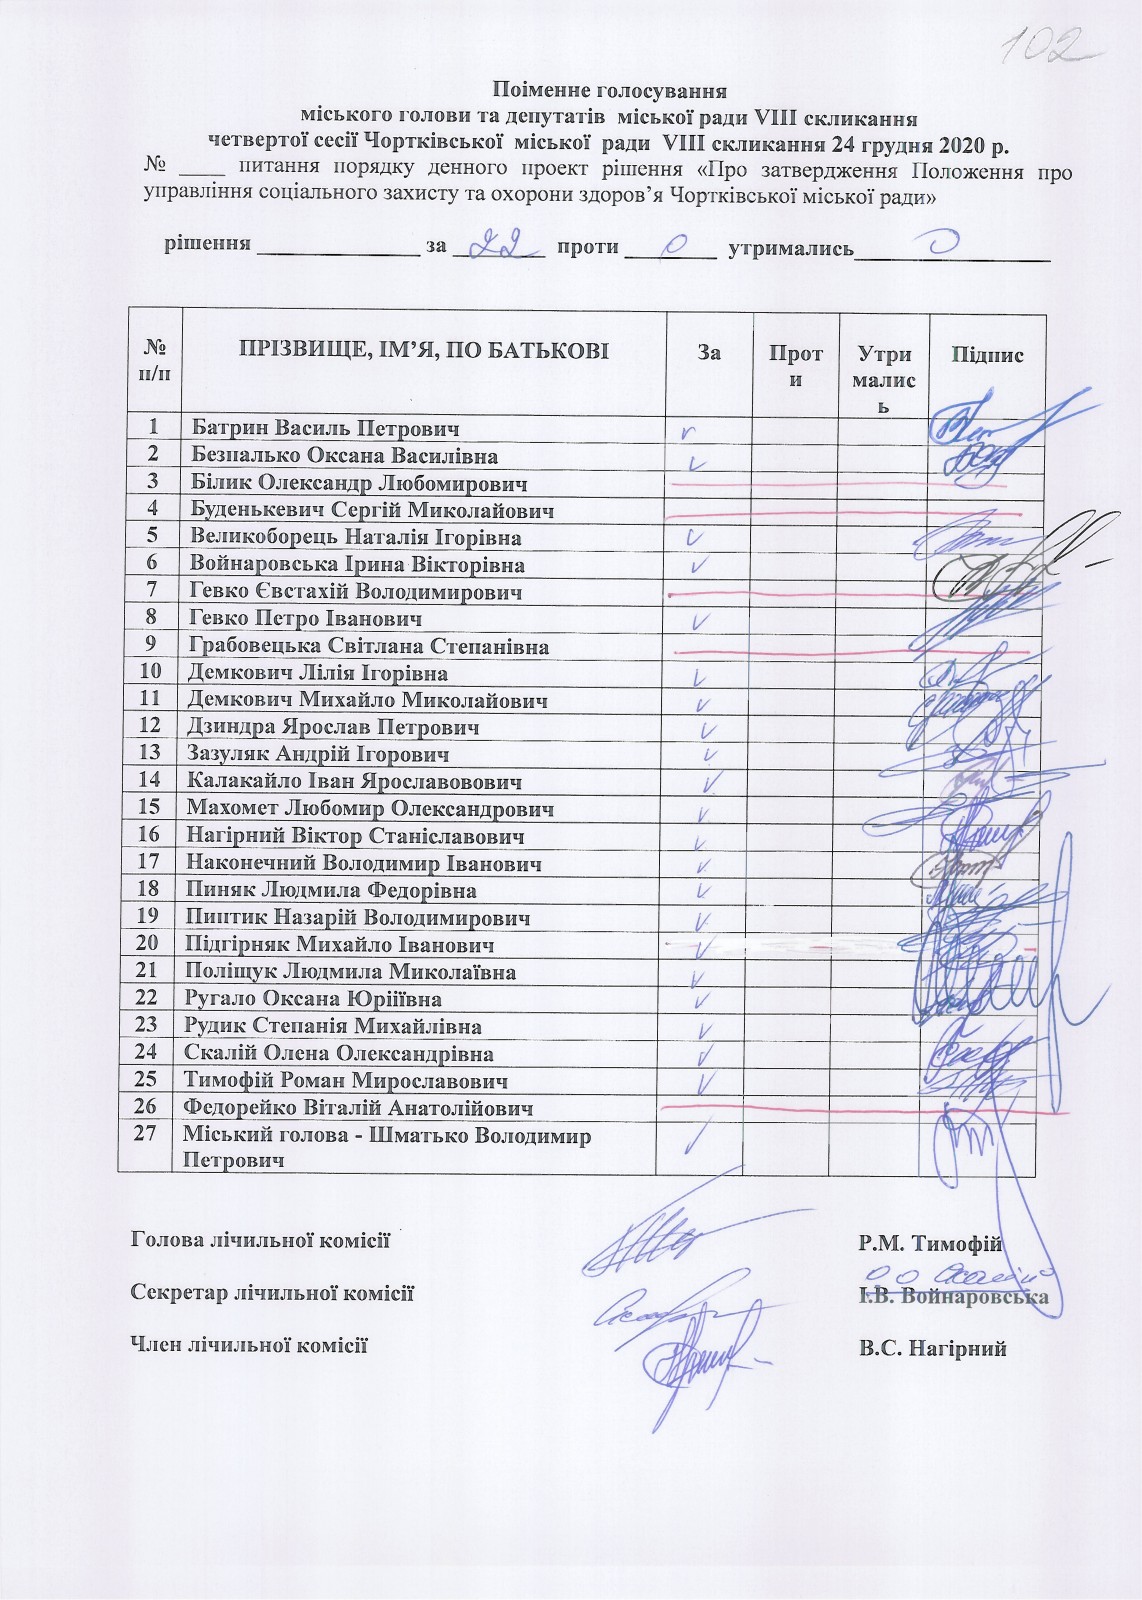 102
Поіменне голосування
міського голови та депутатів міської ради VIII скликання
четвертої сесії Чортківської міської ради VIII скликання 24 грудня 2020 р.
№ ____ питання порядку денного проект рішення «Про затвердження Положення про
управління соціального захисту та охорони здоров’я Чортківської міської ради»
рішення ______________ за 22 проти 0 утримались 0
№ п/п ПРІЗВИЩЕ, ІМ’Я, ПО БАТЬКОВІ За Проти Утримались Підпис
1 Батрин Василь Петрович v
2 Безпалько Оксана Василівна v
3 Білик Олександр Любомирович
4 Буденькевич Сергій Миколайович
5 Великоборець Наталія Ігорівна v
6 Войнаровська Ірина Вікторівна v
7 Гевко Євстахій Володимирович
8 Гевко Петро Іванович v
9 Грабовецька Світлана Степанівна
10 Демкович Лілія Ігорівна v
11 Демкович Михайло Миколайович v
12 Дзиндра Ярослав Петрович v
13 Зазуляк Андрій Ігорович v
14 Калакайло Іван Ярославовович v
15 Махомет Любомир Олександрович v
16 Нагірний Віктор Станіславович v
17 Наконечний Володимир Іванович v
18 Пиняк Людмила Федорівна v
19 Пиптик Назарій Володимирович v
20 Підгірняк Михайло Іванович v
21 Поліщук Людмила Миколаївна v
22 Ругало Оксана Юріїївна v
23 Рудик Степанія Михайлівна v
24 Скалій Олена Олександрівна v
25 Тимофій Роман Мирославович v
26 Федорейко Віталій Анатолійович
27 Міський голова - Шматько Володимир v
Петрович
Голова лічильної комісії Р.М. Тимофій
О О Скалій
Секретар лічильної комісії І.В. Войнаровська
Член лічильної комісії В.С. Нагірний